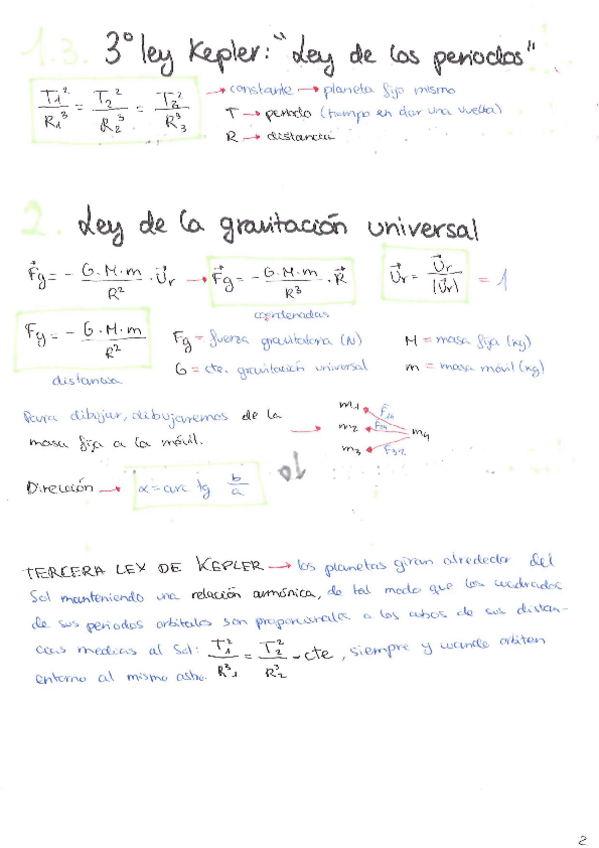 1.3. 3º ley Kepler: "Ley de los periodos"
T1²/R1³ = T2²/R2³ = T3²/R3³ → constante → planeta fijo mismo
T → periodo (tiempo en dar una vuelta)
R → distancia
2. Ley de la gravitación universal
F⃗g = - G·M·m/R² · U⃗r → F⃗g = - G·M·m/R³ · R⃗ U⃗r = U⃗r/|U⃗r| = 1
coordenadas
Fg = - G·M·m/R² Fg = fuerza gravitatoria (N) M = masa fija (kg)
G = cte. gravitación universal m = masa móvil (kg)
distancia
Para dibujar, dibujaremos de la
masa fija a la móvil. →
m1 F14
m2 F24 m4
m3 F34
Dirección → α = arc tg b/a
TERCERA LEY DE KEPLER → los planetas giran alrededor del
Sol manteniendo una relación armónica, de tal modo que los cuadrados
de sus periodos orbitales son proporcionales a los cubos de sus distan-
cias medias al Sol: T1²/R1³ = T2²/R2³ - cte, siempre y cuando orbiten
entorno al mismo astro.
2